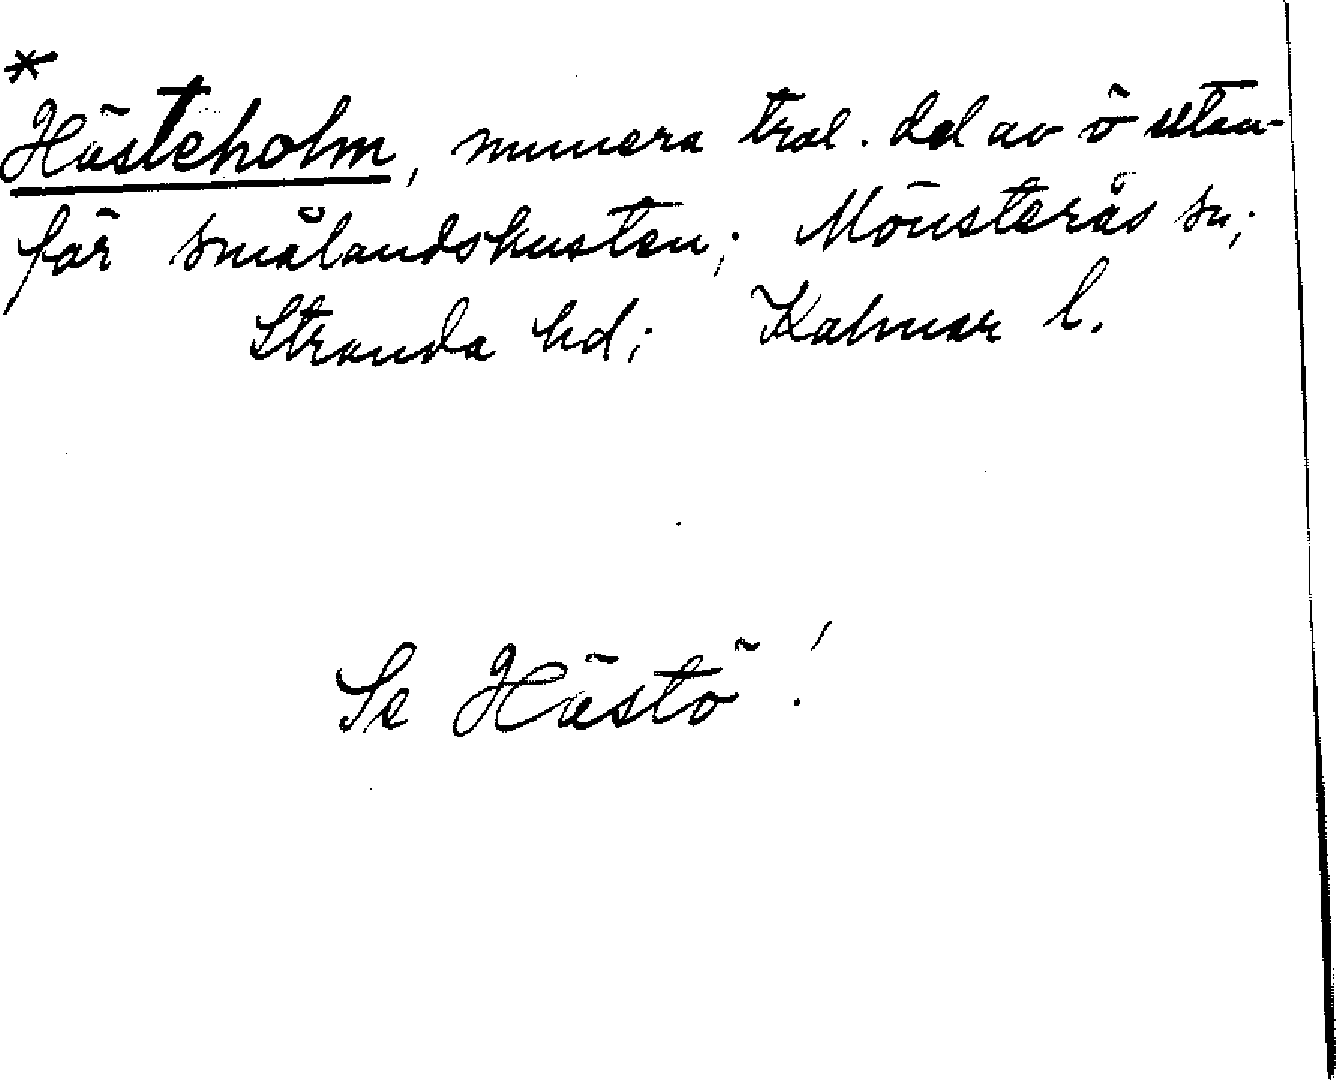 *
Hästeholm, numera trol. del av ö utan-
för smålandskusten; Mönsterås sn;
Stranda hd; Kalmar l.
Se Hästö!